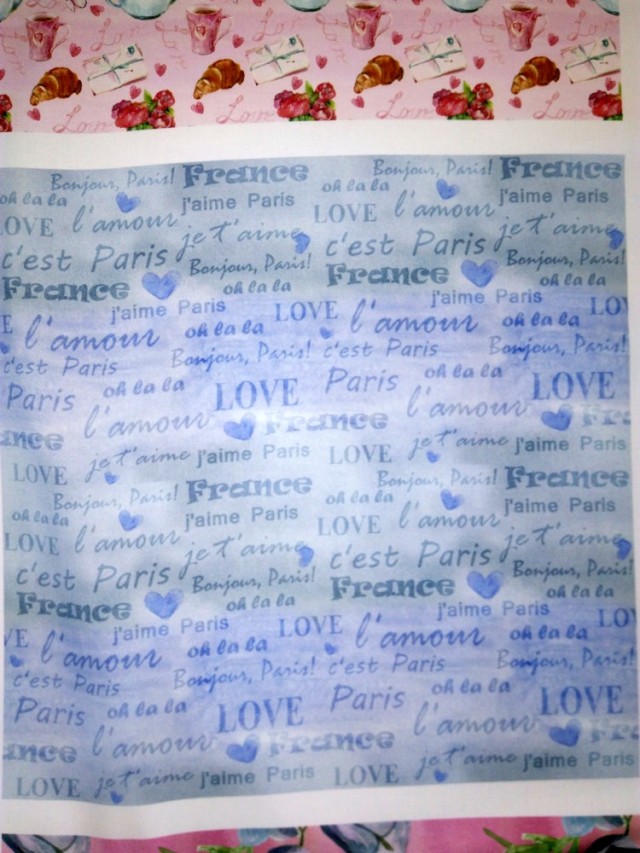 Love Love
Bonjour, Paris! France Bonjour, Paris! France
oh la la j'aime Paris oh la la j'aime Paris
LOVE l'amour LOVE l'amour
je t'aime je t'aime
c'est Paris c'est Paris
Bonjour, Paris! Bonjour, Paris!
France oh la la France oh la la
j'aime Paris LOVE j'aime Paris
l'amour oh la la l'amour oh la la
c'est Paris Bonjour, Paris! c'est Paris Bonjour, Paris!
Paris oh la la LOVE Paris oh la la LOVE
l'amour France l'amour
je t'aime j'aime Paris je t'aime j'aime Paris
LOVE LOVE
Bonjour, Paris! France Bonjour, Paris! France
oh la la j'aime Paris oh la la j'aime Paris
LOVE l'amour LOVE l'amour
je t'aime je t'aime
c'est Paris c'est Paris
Bonjour, Paris! Bonjour, Paris!
France oh la la France oh la la
j'aime Paris LOVE j'aime Paris
l'amour oh la la l'amour oh la la
c'est Paris Bonjour, Paris! c'est Paris Bonjour, Paris!
Paris oh la la LOVE Paris oh la la LOVE
l'amour France l'amour
LOVE je t'aime j'aime Paris LOVE je t'aime j'aime Paris